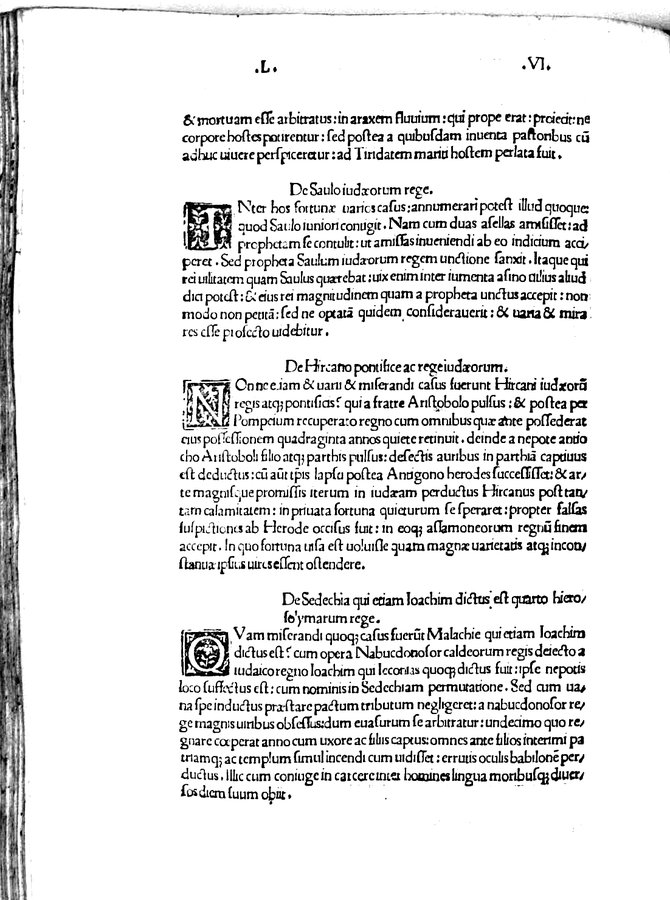 .L. .VI.
& mortuam esse arbitratus: in araxem fluuium: qui prope erat: proiecit: ne
corpore hostes potirentur: sed postea a quibusdam inuenta pastoribus cū
adhuc uiuere perspiceretur: ad Tiridatem mariti hostem perlata fuit.
De Saulo iudæorum rege.
INter hos fortunæ uarios casus: annumerari potest illud quoque:
quod Saulo iuniori contigit. Nam cum duas asellas amisisset: ad
prophetam se contulit: ut amissas inueniendi ab eo indicium acci/
peret. Sed propheta Saulum iudæorum regem unctione sanxit. Itaque qui
rei uilitatem quam Saulus quærebat: uix enim inter iumenta asino uilius aliud
dici potest: & eius rei magnitudinem quam a propheta unctus accepit: non
modo non petitā: sed ne optatā quidem considerauerit: & uaria & mira
res esse profecto uidebitur.
De Hircano pontifice ac rege iudæorum.
NOnne etiam & uarii & miserandi casus fuerunt Hircani iudæorū
regis atq; pontificis? qui a fratre Aristobolo pulsus: & postea per
Pompeium recuperato regno cum omnibus quæ ante possederat
eius possessionem quadraginta annos quiete retinuit. deinde a nepote antio
cho Aristoboli filio atq; parthis pulsus: desectis auribus in parthiā captiuus
est deductus: cū aūt tp̄is lapsu postea Antigono herodes successisset: & ar/
te magnisque promissis iterum in iudæam perductus Hircanus post tan/
tam calamitatem: in priuata fortuna quieturum se speraret: propter falsas
suspictiones ab Herode occisus fuit: in eoq; assamoneorum regnū finem
accepit. In quo fortuna uisa est uoluisse quam magnæ uarietatis atq; incon/
stantiæ ipsius uires essent ostendere.
De Sedechia qui etiam Ioachim dictus est quarto hiero/
solymarum rege.
QVam miserandi quoq; casus fuerūt Malachie qui etiam Ioachim
dictus est? cum opera Nabucdonosor caldeorum regis deiecto a
iudaico regno Ioachim qui Ieconias quoq; dictus fuit: ipse nepotis
loco suffectus est: cum nominis in Sedechiam permutatione. Sed cum ua/
na spe inductus præstare pactum tributum negligeret: a nabucdonosor re/
ge magnis uiribus obsessus: dum euasurum se arbitratur: undecimo quo re/
gnare cœperat anno cum uxore ac filiis captus: omnes ante filios interimi pa
triamq; ac templum simul incendi cum uidisset: errutis oculis babilonē per/
ductus. Illic cum coniuge in carcere inter homines lingua moribusq; diuer/
sos diem suum obiit.